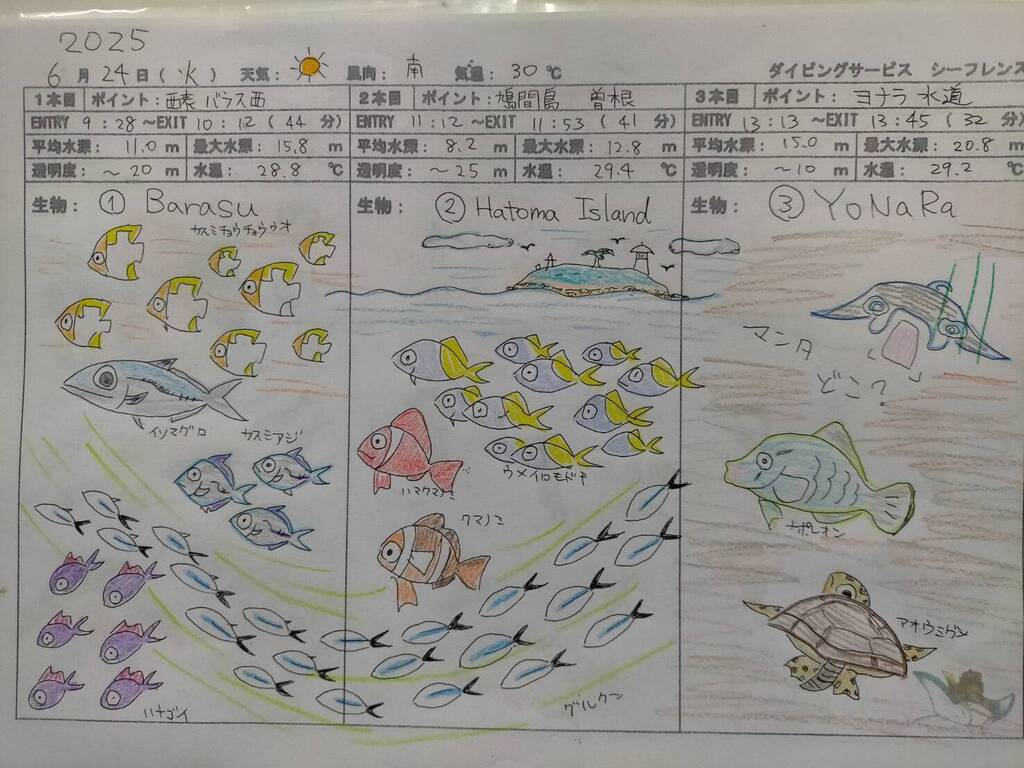 2025
6月24日(火) 天気: 風向: 南 気温: 30℃ ダイビングサービス シーフレンズ
1本目 ポイント: 西表 バラス西
ENTRY 9:28 ~EXIT 10:12 (44 分)
平均水深: 11.0 m 最大水深: 15.8 m
透明度: ~20 m 水温: 28.8 ℃
生物: ① Barasu
カスミチョウチョウウオ
イソマグロ
カスミアジ
ハナゴイ
2本目 ポイント: 鳩間島 曽根
ENTRY 11:12 ~EXIT 11:53 (41 分)
平均水深: 8.2 m 最大水深: 12.8 m
透明度: ~25 m 水温: 29.4 ℃
生物: ② Hatoma Island
ウメイロモドキ
ハマクマノミ
クマノミ
グルクン
3本目 ポイント: ヨナラ 水道
ENTRY 13:13 ~EXIT 13:45 (32 分)
平均水深: 15.0 m 最大水深: 20.8 m
透明度: ~10 m 水温: 29.2 ℃
生物: ③ YoNaRa
マンタ
どこ?
ナポレオン
アオウミガメ